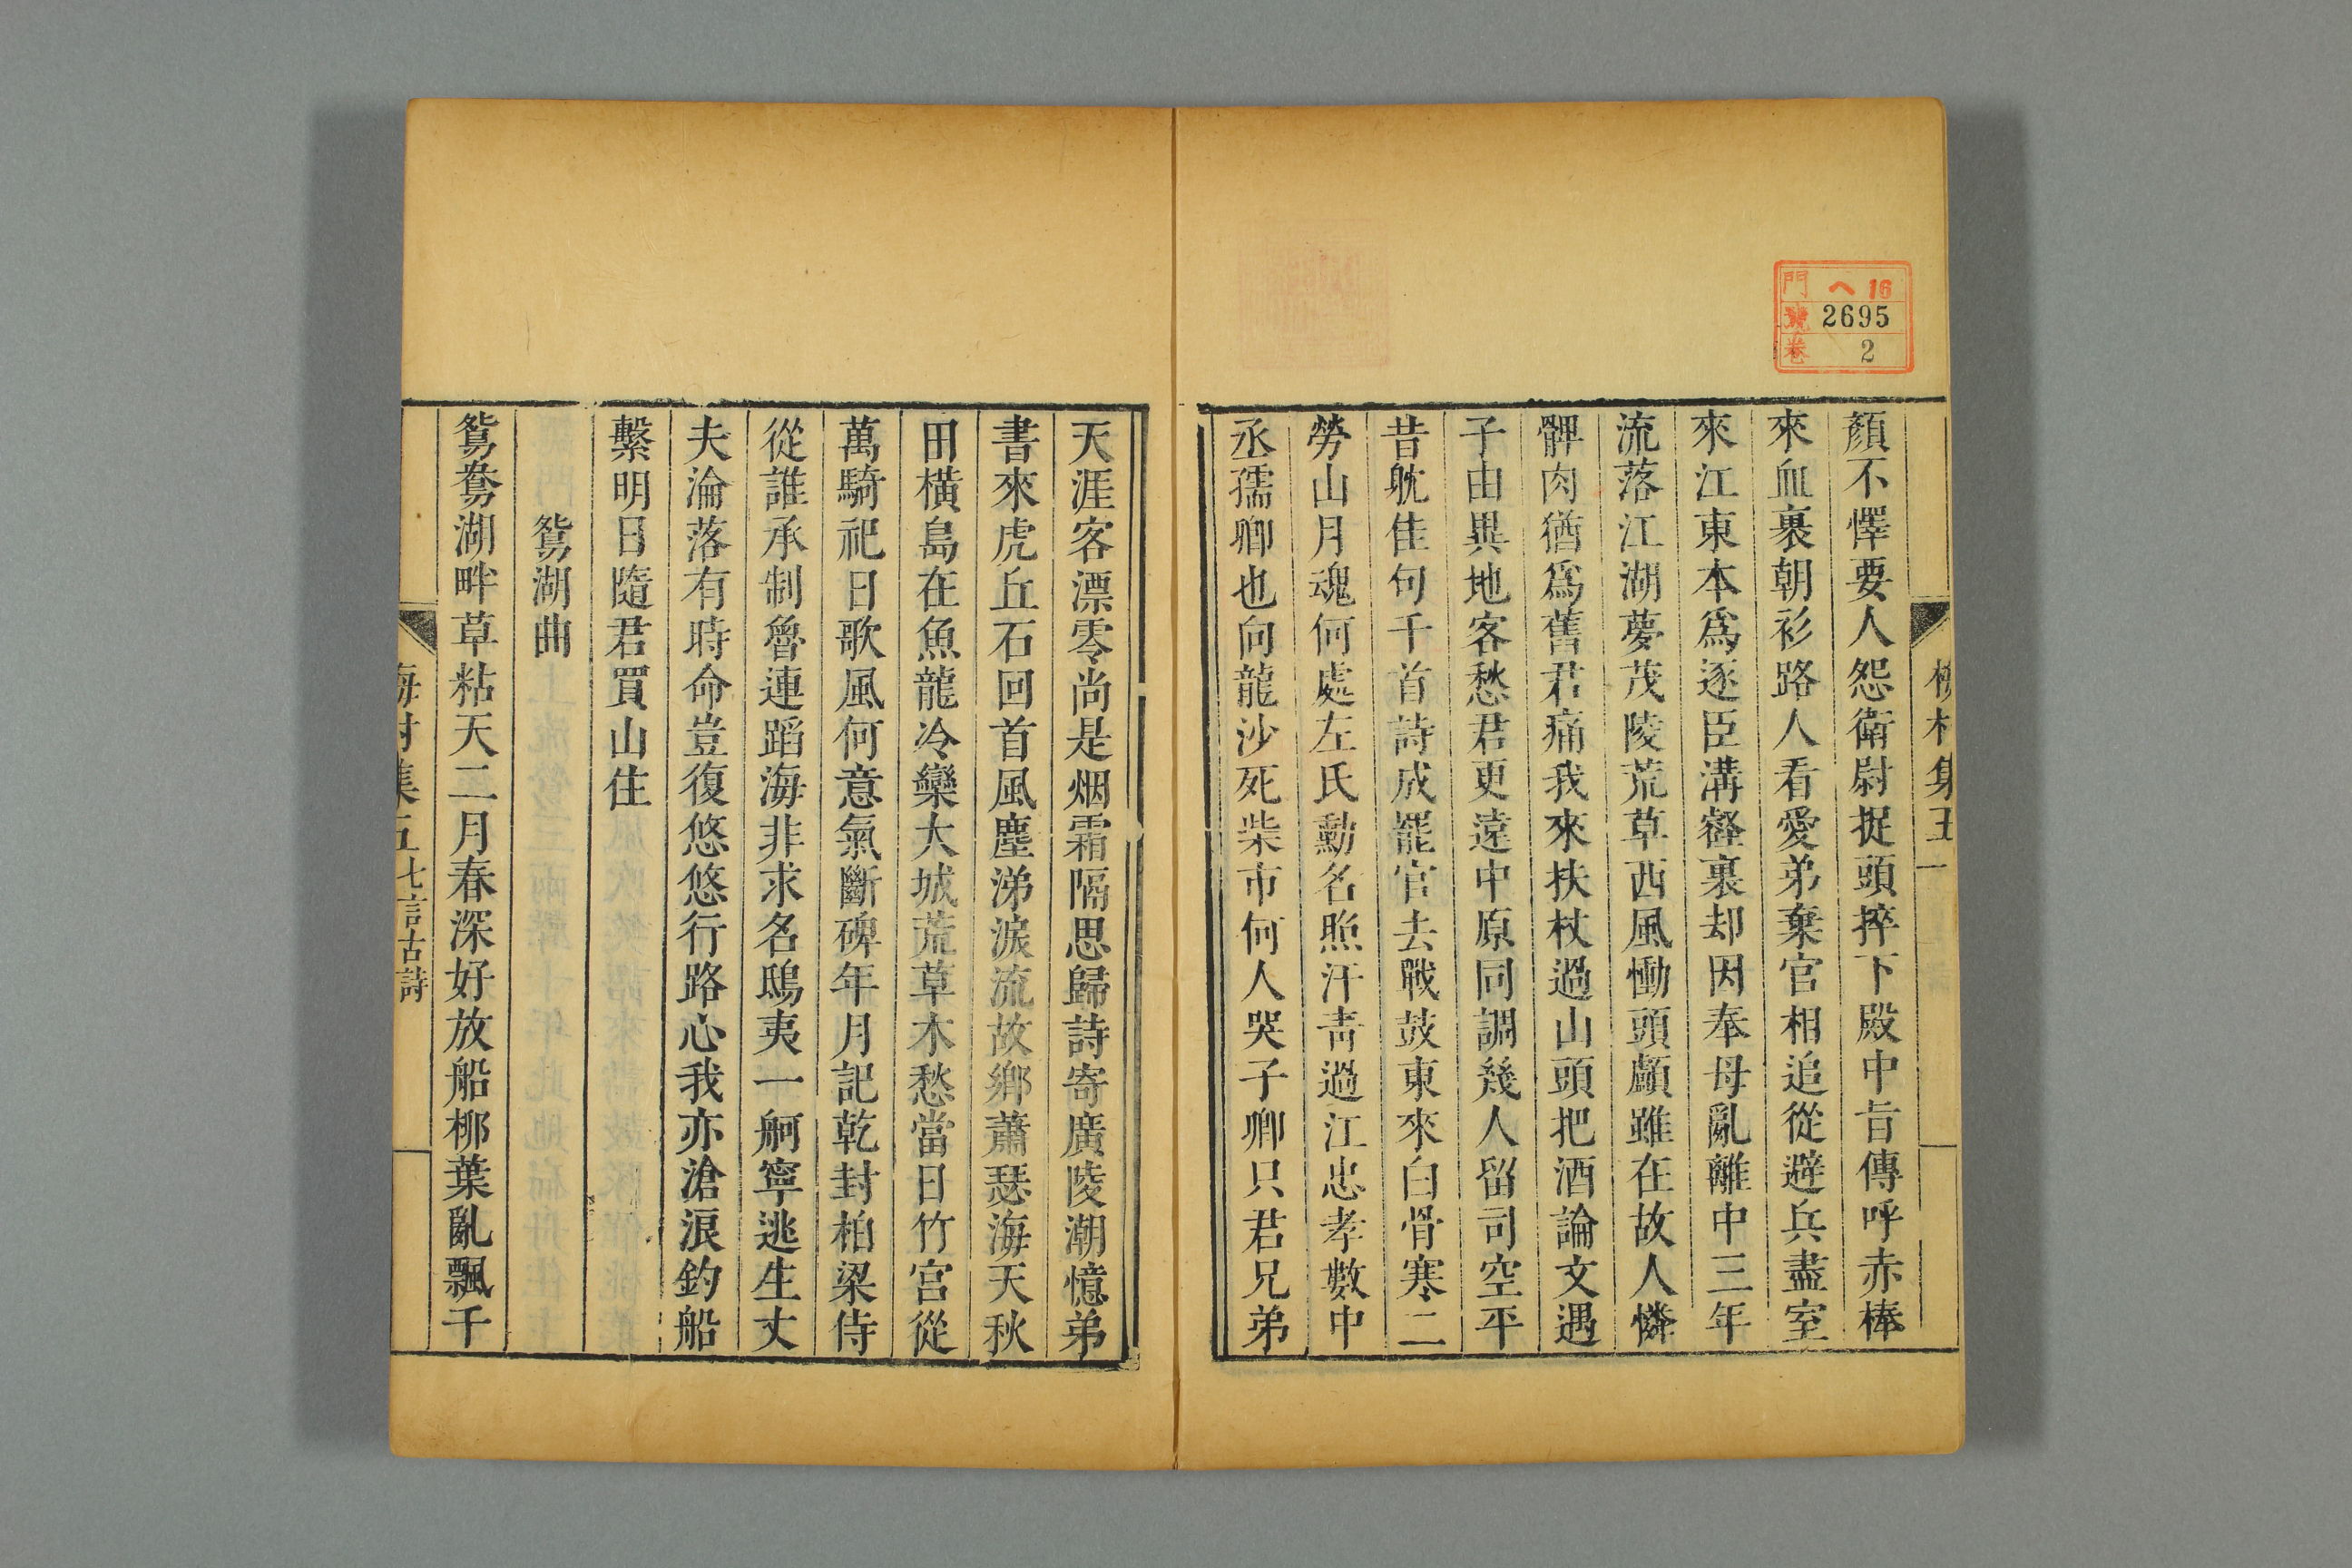 門 ヘ 16
號 2695
卷 2
村集五
一
顏不懌要人怨衛尉捉頭捽下殿中旨傳呼赤棒
來血裹朝衫路人看愛弟棄官相追從避兵盡室
來江東本爲逐臣溝壑裏却因奉母亂離中三年
流落江湖夢茂陵荒草西風慟頭顱雖在故人憐
髀肉猶爲舊君痛我來扶杖過山頭把酒論文遇
子由異地客愁君更遠中原同調幾人留司空平
昔躭佳句千首詩成罷官去戰鼓東來白骨寒二
勞山月魂何處左氏勳名照汗青過江忠孝數中
丞孺卿也向龍沙死柴市何人哭子卿只君兄弟
天涯客漂零尚是烟霜隔思歸詩寄廣陵潮憶弟
書來虎丘石回首風塵涕淚流故鄉蕭瑟海天秋
田橫島在魚龍冷欒大城荒草木愁當日竹宮從
萬騎祀日歌風何意氣斷碑年月記乾封柏梁侍
從誰承制魯連蹈海非求名鴟夷一舸寧逃生丈
夫淪落有時命豈復悠悠行路心我亦滄浪釣船
繫明日隨君買山住
鴛湖曲
鴛鴦湖畔草粘天二月春深好放船柳葉亂飄千
梅村集五 七言古詩